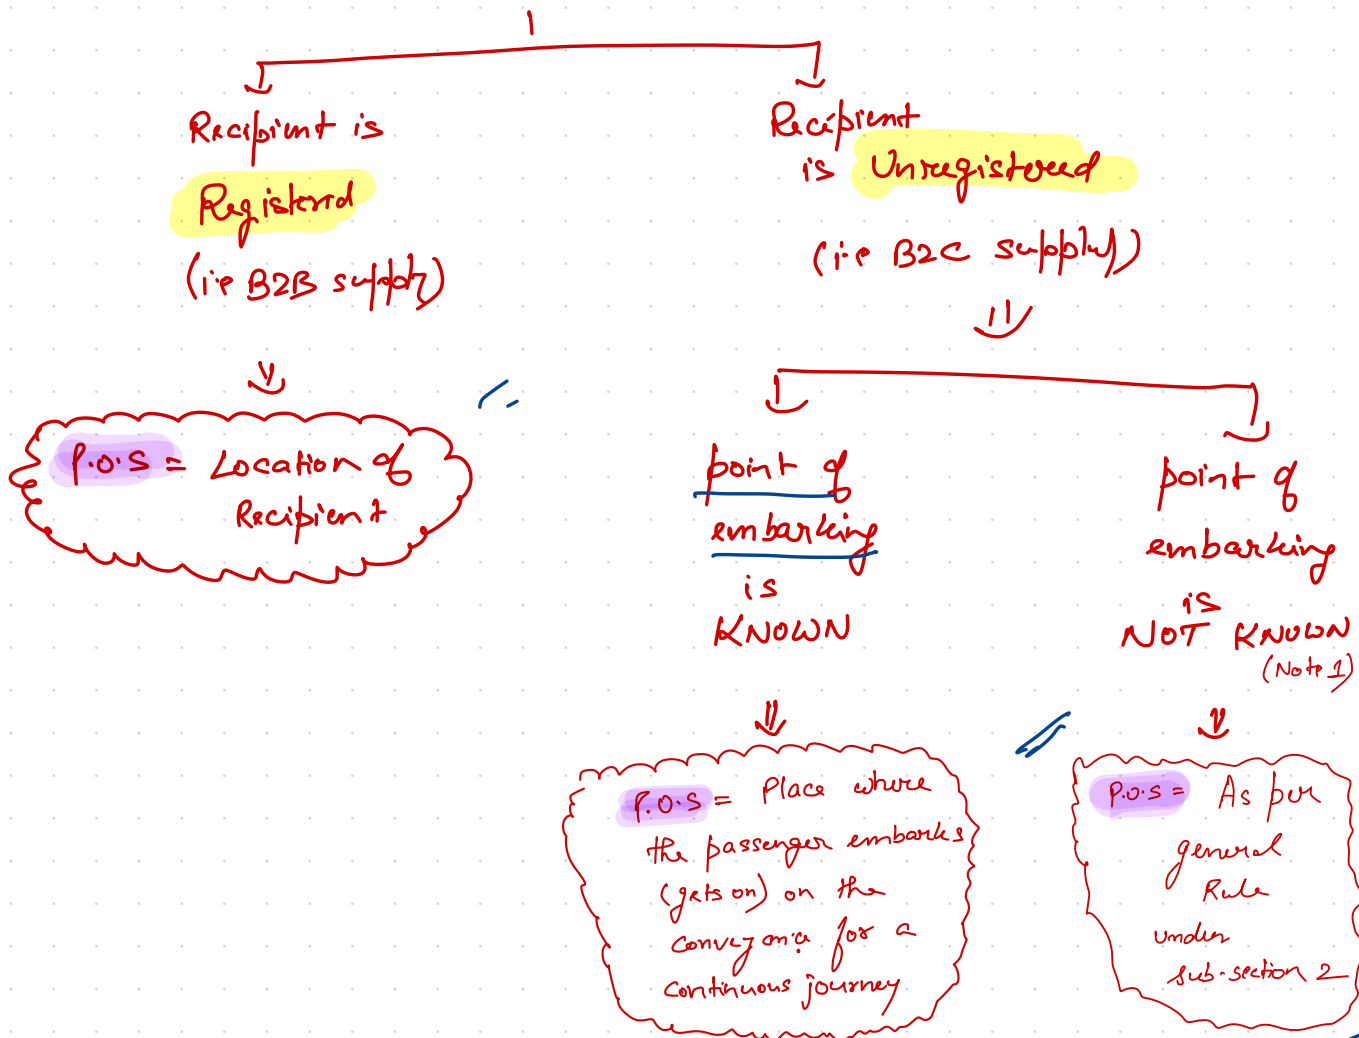 Recipient is
Registered
(i.e B2B supply)
P.O.S = Location of
Recipient
Recipient
is Unregistered
(i.e B2C supply)
point of
embarking
is
KNOWN
P.O.S = Place where
the passenger embarks
(gets on) on the
conveyance for a
continuous journey
point of
embarking
is
NOT KNOWN
(Note 1)
P.O.S = As per
general
Rule
under
sub-section 2